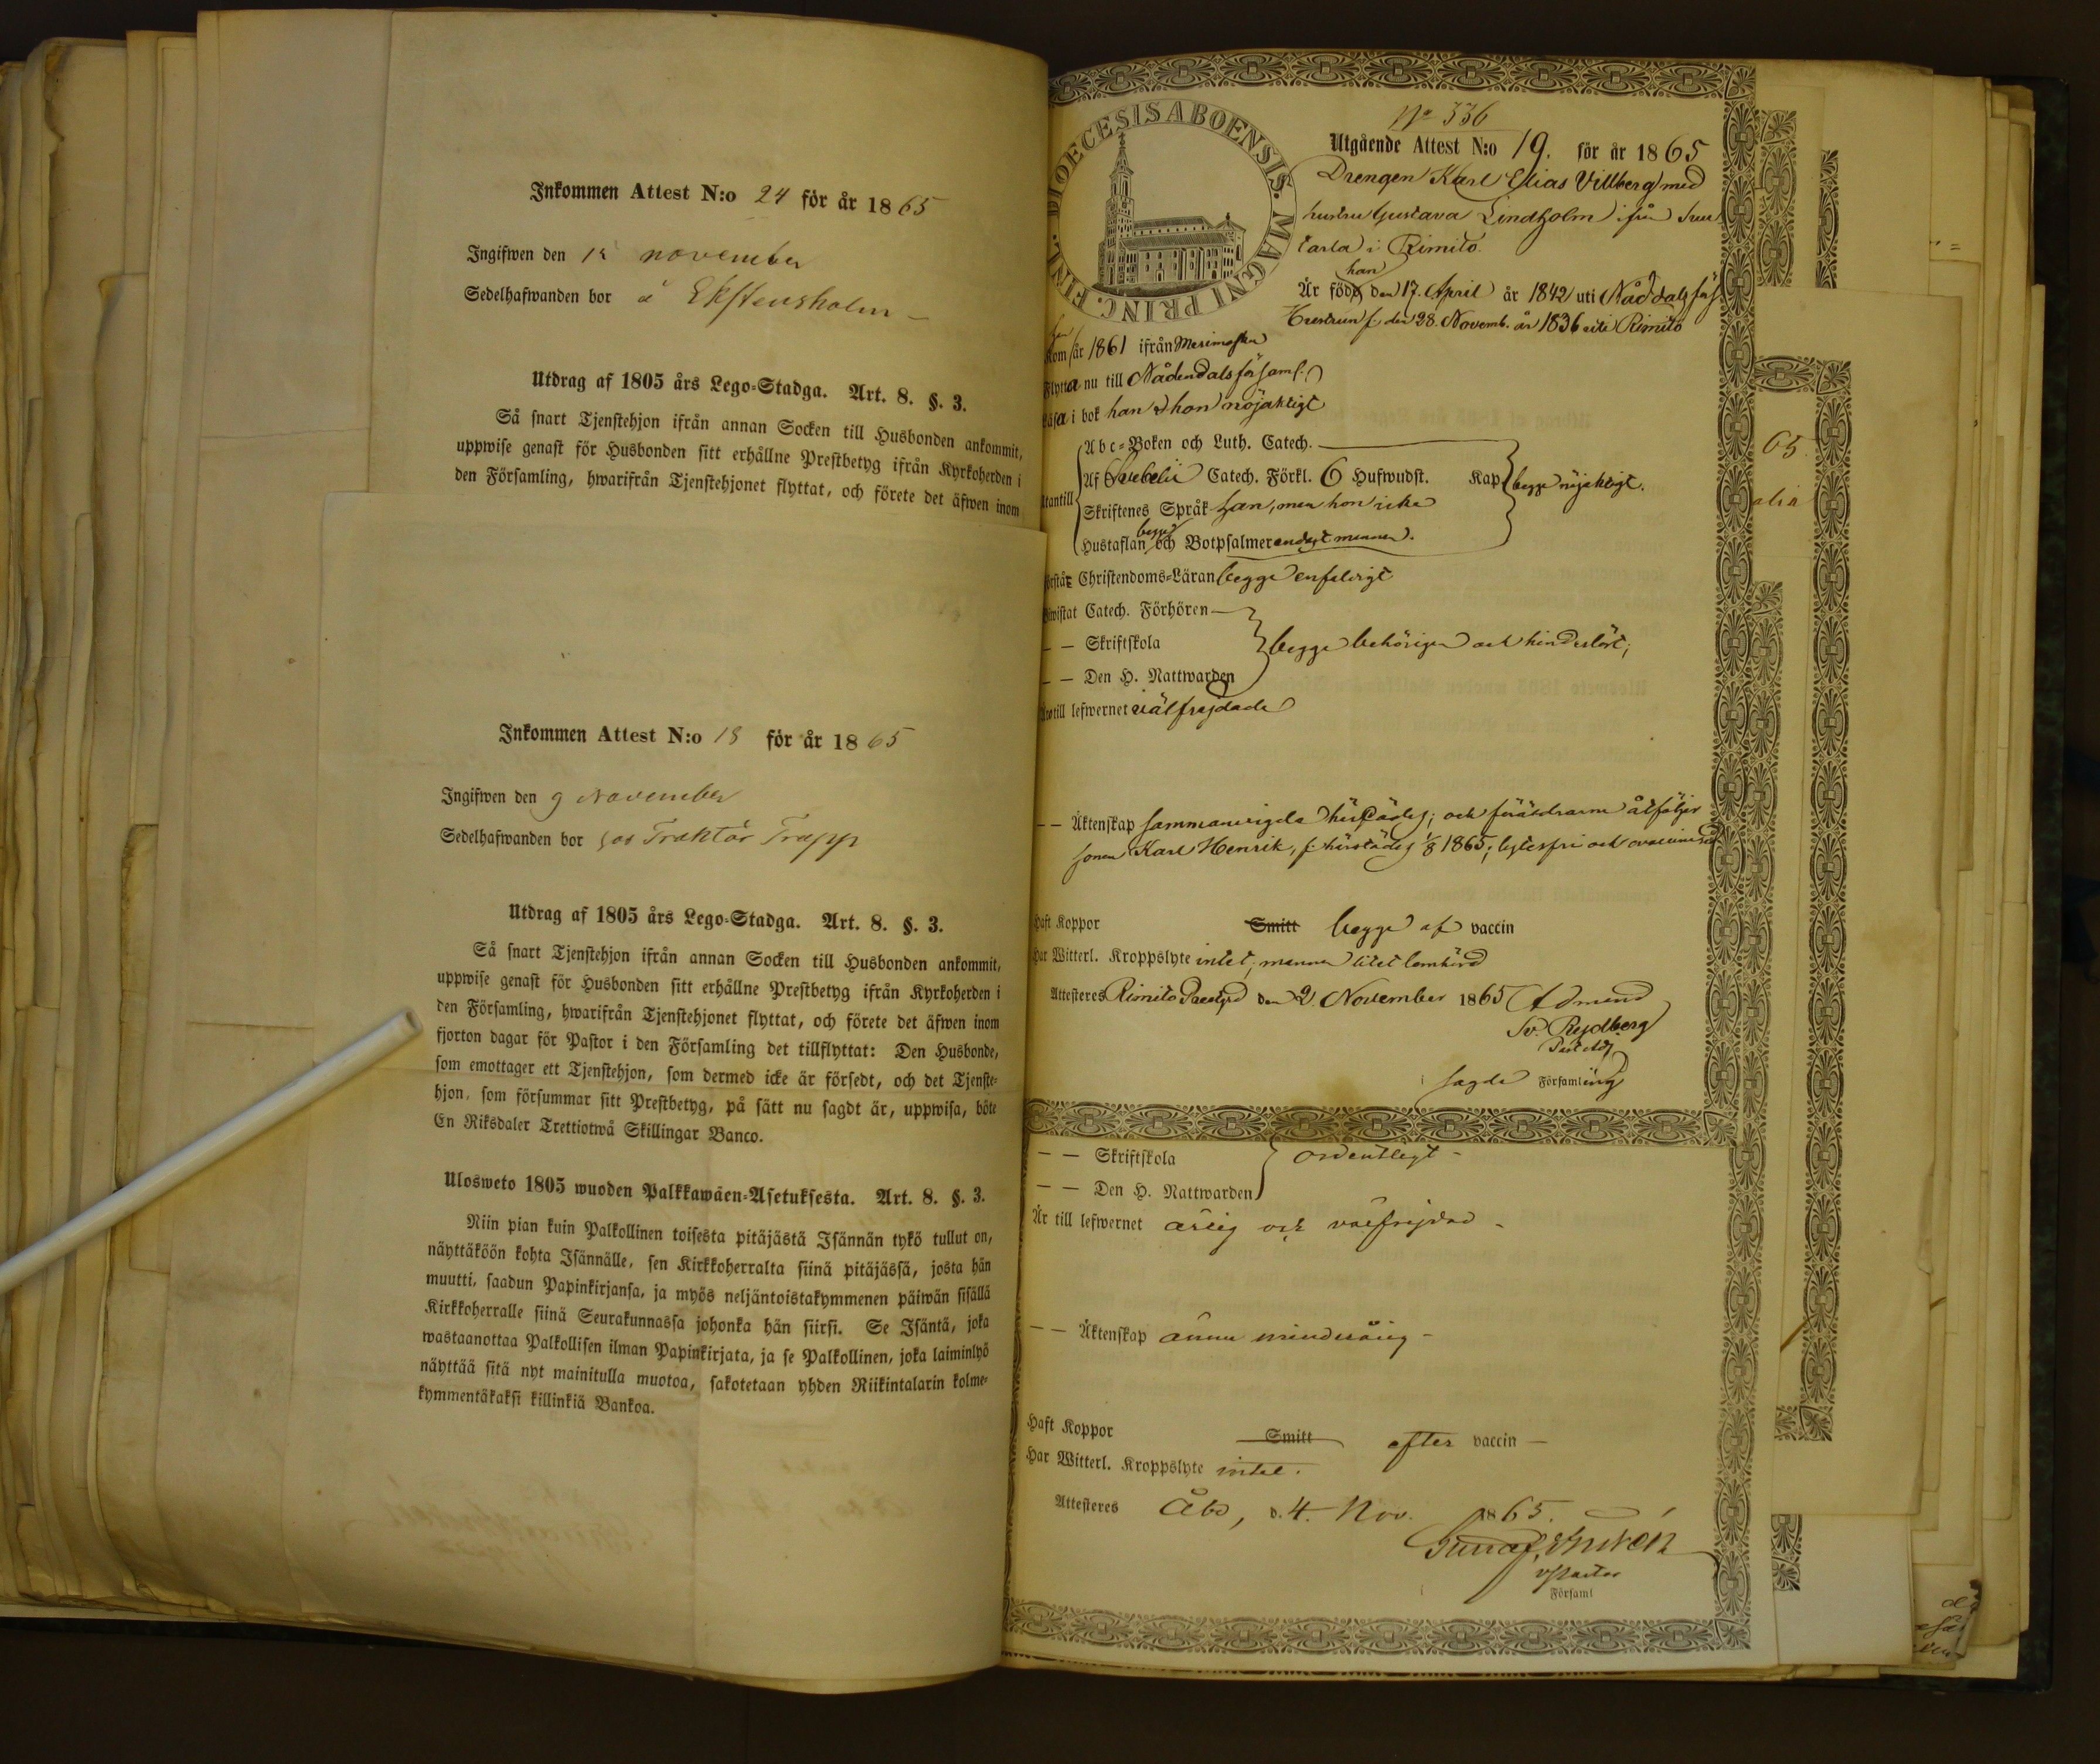 Inkommen Attest N:o 24 för år 1865
Ingifwen den november
Sedelhafwanden bor å Ekstensholm
Utdrag af 1805 års Lego-Stadga. Art. 8. §. 3.
Så snart Tjenstehjon ifrån annan Socken till Husbonden ankommit,
uppwise genast för Husbonden sitt erhållne Prestbetyg ifrån Kyrkoherden i
den Församling, hwarifrån Tjenstehjonet flyttat, och förete det äfwen inom
Inkommen Attest N:o 18 för år 1865
Ingifwen den 9 November
Sedelhafwanden bor hos Traktör Trapp
Utdrag af 1805 års Lego-Stadga. Art. 8. §. 3.
Så snart Tjenstehjon ifrån annan Socken till Husbonden ankommit,
uppwise genast för Husbonden sitt erhållne Prestbetyg ifrån Kyrkoherden i
den Församling, hwarifrån Tjenstehjonet flyttat, och förete det äfwen inom
fjorton dagar för Pastor i den Församling det tillflyttat: Den Husbonde,
som emottager ett Tjenstehjon, som dermed icke är försedt, och det Tjenste-
hjon, som försummar sitt Prestbetyg, på sätt nu sagdt är, uppwisa, böte
En Riksdaler Trettiotwå Skillingar Banco.
Ulosweto 1805 wuoden Palkkawäen-Asetuksesta. Art. 8. §. 3.
Niin pian kuin Palkollinen toisesta pitäjästä Isännän tykö tullut on,
näyttäköön kohta Isännälle, sen Kirkkoherralta siinä pitäjässä, josta hän
muutti, saadun Papinkirjansa, ja myös neljäntoistakymmenen päiwän sisällä
Kirkkoherralle siinä Seurakunnassa johonka hän siirsi. Se Isäntä, joka
wastaanottaa Palkollisen ilman Papinkirjata, ja se Palkollinen, joka laiminlyö
näyttää sitä nyt mainitulla muotoa, sakotetaan yhden Riikintalarin kolme-
kymmentäkaksi killinkiä Bankoa.
DIOECESIS ABOENSIS. MAGNI PRINC. FINL.
No 336
Utgående Attest N:o 19. för år 1865
Drengen Karl Elias Villberg med
hustru Gustava Lindholm ifrån
i Rimito.
han
Är född den 17. April år 1842 uti Nåddals förs.
Hustrun f. den 28. Novemb. år 1836 uti Rimito
kom år 1861 ifrån Merimasku
Flytta nu till Nådendals församl.
Läsa i bok han & hon nöjaktigt
Abc-Boken och Luth. Catech.
Af Svebelii Catech. Förkl. 6 Hufwudst. Kap begge nöjaktigt.
Utantill
Skriftenes Språk han, men hon icke
Hustaflan begge och Botpsalmer endast mannen.
Förstår Christendoms-Läran begge enfaldigt
Bewistat Catech. Förhören
— — Skriftskola begge behörigen och hinderlöst;
— — Den H. Nattwarden
Äro till lefwernet välfrejdade
— — Äktenskap sammanvigda härstädes; och föräldrarne åtföljer
sonen Karl Henrik, f. härstädes 1/8 1865; lytesfri och ovaccinerad
Haft Koppor Smitt begge af vaccin
Har Witterl. Kroppslyte intet; mannen litet lomhörd
Attesteres Rimito Prestgård den 2. November 1865 Edmund
Sv. Rejdberg
Past. Adj.
sagde Församling
— — Skriftskola ordentligt
— — Den H. Nattwarden
Är till lefwernet ärlig och välfrejdad
— — Äktenskap ännu minderårig
Haft Koppor Smitt efter vaccin
Har Witterl. Kroppslyte intet.
Attesteres Åbo, d. 4. Nov. 1865.
v Pastor
Församl
65